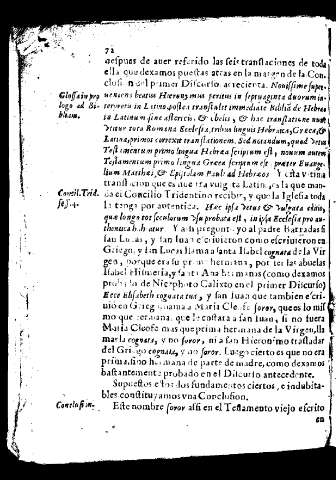 72
despues de auer referido las seis translaciones de toda
ella que dexamos puestas atras en la margen de la Con-
clusion del primer Discurso, acrecienta. Nouissime super-
Glossa in pro
logo ad Bi-
bliam.
ueniens beatus Hieronymus peritus in septuaginta duorum in-
terpretũ in Latino, postea transtulit immediate Bibliã de Hebreo
in Latinum sine asteriscis, & obelis, & hac translatione nunc
vtitur tota Romana Ecclesia, tribus linguis Hebraica, Græca, &
Latina, primos correxit translationem. Sed notandum, quod Vetus
Testamentum primo lingua Hebræa scriptum est, nouum autem
Testamentum primo lingua Græca scriptum est præter Euange-
lium Matthæi, & Epistolam Pauli ad Hebræos. Y esta vltima
translacion que es nuestra vulgata Latina, es la que man-
Concil. Trid.
sess. 4.
da el Concilio Tridentino recibir, y que la Iglesia toda
la tenga por autentica. Hæc ipsa Vetus & vulgata editio,
quæ longo tot sæculorum vsu probata est, in ipsa Ecclesia pro au-
thentica habeatur. Y assi pregunto yo al padre Barradas si
san Lucas, y san Iuan escriuieron como escriuieron en
Griego, y san Lucas llama a santa Isabel cognata de la Vir-
gen, porque era su prima hermana, por ser las abuelas
Isabel Hismeria, y santa Ana hermanas (como dexamos
probado de Nicephoro Calixto en el primer Discurso)
Ecce Elisabeth cognata tua, y san Iuan que tambien escri-
uio en Griego llama a Maria Cleofe soror, que es lo mis-
mo que hermana, que le costara a san Iuan, si no fuera
Maria Cleofa mas que prima hermana de la Virgen, lla-
marla cognata, y no soror, ni a san Hieronimo trasladar
del Griego cognata, y no soror. Luego cierto es que no era
prima, sino hermana de parte de madre, como dexamos
bastantemente probado en el Discurso antecedente.
Supuestos estos dos fundamentos ciertos, e indubita-
bles constituyamos vna Conclusion.
Conclusion.
Este nombre soror assi en el Testamento viejo escrito
en